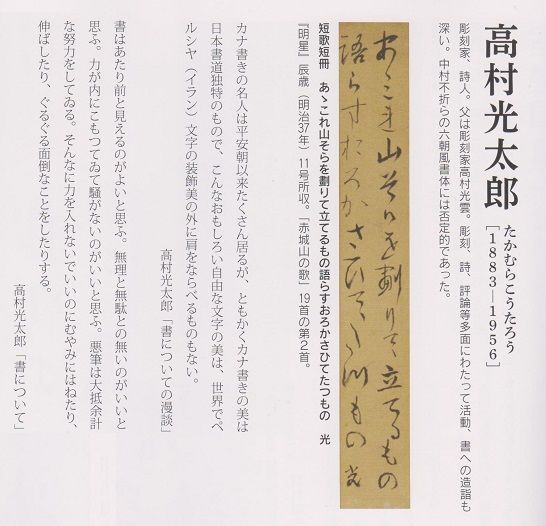 高村光太郎
たかむらこうたろう
[1883―1956]
彫刻家、詩人。父は彫刻家高村光雲。彫刻、詩、評論等多面にわたって活動、書への造詣も
深い。中村不折らの六朝風書体には否定的であった。
あゝこれ山そらを劃りて立てるもの
語らすおろかさひてたつもの 光
短歌短冊 あゝこれ山そらを劃りて立てるもの語らすおろかさひてたつもの 光
『明星』辰歳(明治37年)11号所収。「赤城山の歌」19首の第2首。
カナ書きの名人は平安朝以来たくさん居るが、ともかくカナ書きの美は
日本書道独特のもので、こんなおもしろい自由な文字の美は、世界でペ
ルシヤ(イラン)文字の装飾美の外に肩をならべるものもない。
高村光太郎「書についての漫談」
書はあたり前と見えるのがよいと思ふ。無理と無駄との無いのがいいと
思ふ。力が内にこもつてゐて騒がないのがいいと思ふ。悪筆は大抵余計
な努力をしてゐる。そんなに力を入れないでいいのにむやみにはねたり、
伸ばしたり、ぐるぐる面倒なことをしたりする。
高村光太郎「書について」